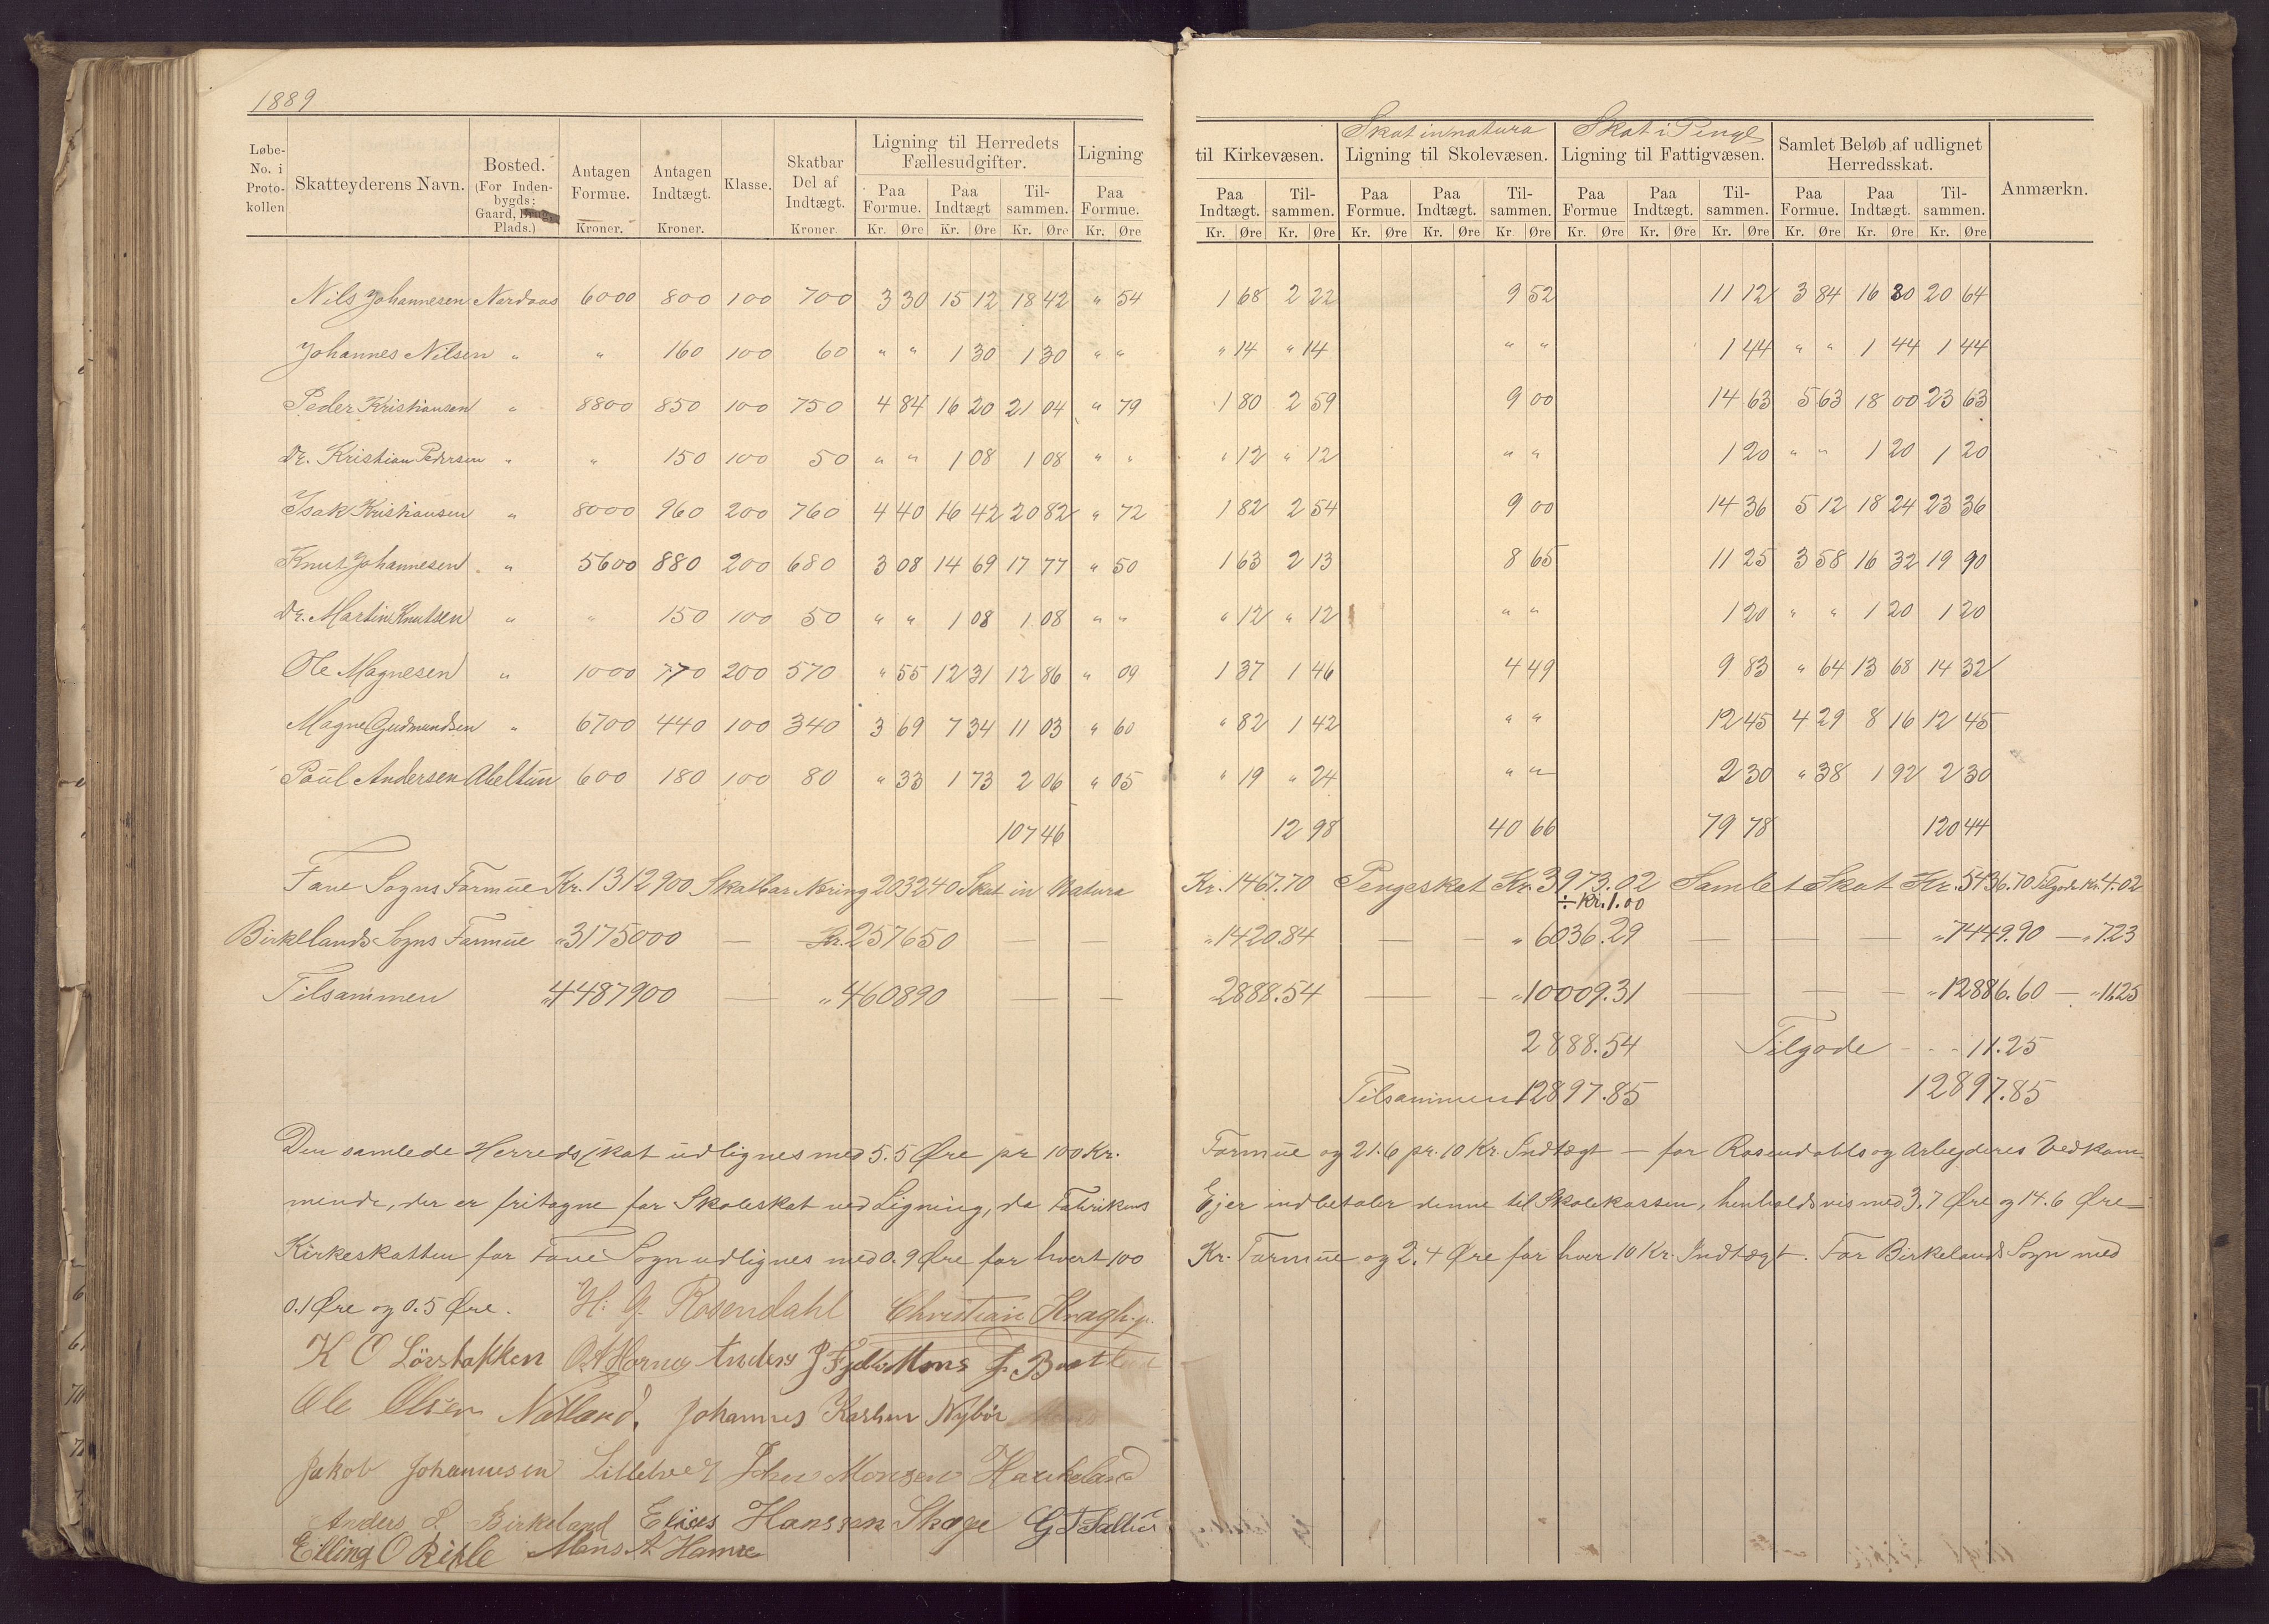 1889
Løbe-No. i Protokollen Skatteyderens Navn. Bosted. (For Indenbygds: Gaard, Plads.) Antagen Formue. Kroner. Antagen Indtægt. Kroner. Klasse. Skatbar Del af Indtægt. Kroner. Ligning til Herredets Fællesudgifter. Paa Formue. Kr. Øre Paa Indtægt Kr. Øre Tilsammen. Kr. Øre Ligning Paa Formue. Kr. Øre
til Kirkevæsen. Paa Indtægt. Kr. Øre Tilsammen. Kr. Øre Skat in natura Ligning til Skolevæsen. Paa Formue. Kr. Øre Paa Indtægt. Kr. Øre Tilsammen. Kr. Øre Skat i Penge Ligning til Fattigvæsen. Paa Formue Kr. Øre Paa Indtægt. Kr. Øre Tilsammen. Kr. Øre Samlet Beløb af udlignet Herredsskat. Paa Formue. Kr. Øre Paa Indtægt. Kr. Øre Tilsammen. Kr. Øre Anmærkn.
Nils Johannesen Nordaas 6000 800 100 700 3 30 15 12 18 42 " 54 1 68 2 22 9 52 11 12 3 84 16 80 20 64
Johannes Nilsen " " 160 100 60 " " 1 30 1 30 " " " 14 " 14 " " 1 44 " " 1 44 1 44
Peder Kristiansen " 8800 850 100 750 4 84 16 20 21 04 " 79 1 80 2 59 9 00 14 63 5 63 18 00 23 63
Dr. Kristian Pedersen " " 150 100 50 " " 1 08 1 08 " " " 12 " 12 " " 1 20 " " 1 20 1 20
Isak Kristiansen " 8000 960 200 760 4 40 16 42 20 82 " 72 1 82 2 54 9 00 14 36 5 12 18 24 23 36
Knut Johannesen " 5600 880 200 680 3 08 14 69 17 77 " 50 1 63 2 13 8 65 11 25 3 58 16 32 19 90
Dr. Martin Knutsen " " 150 100 50 " " 1 08 1 08 " " " 12 " 12 " " 1 20 " " 1 20 1 20
Ole Magnesen " 1000 770 200 570 " 55 12 31 12 86 " 09 1 37 1 46 4 49 9 83 " 64 13 68 14 32
Magne Gudmundsen " 6700 440 100 340 3 69 7 34 11 03 " 60 " 82 1 42 " " 12 45 4 29 8 16 12 45
Poul Andersen Abeltun 600 180 100 80 " 33 1 73 2 06 " 05 " 19 " 24 " " 2 30 " 38 1 92 2 30
107 46 12 98 40 66 79 78 120 44
Fane Sogns Formue Kr. 1312900 Skatbar Næring 203240 Skat in Natura Kr. 1467.70 Pengeskat Kr. 3973.02 Samlet Skat Kr. 5436.70 Tilgode Kr. 4.02
÷ Kr. 1.00
Birkelands Sogns Formue " 3175000 — Kr. 257650 — — " 1420.84 — — " 6036.29 — — — " 7449.90 — " 7.23
Tilsammen " 4487900 — " 460890 — — " 2888.54 — — " 10009.31 — — — " 12886.60 — " 11.25
2888.54 Tilgode 11.25
Tilsammen 12897.85 12897.85
Den samlede Herredsskat udlignes med 5.5 Øre pr 100 Kr. Formue og 21.6 pr. 10 Kr. Indtægt — for Rosendahls og Arbejderes Vedkom-
mende, der er fritagne for Skoleskat ved Ligning, da Fabrikens Ejer indbetaler denne til Skolekassen, henholdsvis med 3.7 Øre og 14.6 Øre
Kirkeskatten for Fane Sogn udlignes med 0.9 Øre for hvert 100 Kr. Formue og 2.4 Øre for hver 10 Kr. Indtægt. For Birkelands Sogn med
0.1 Øre og 0.5 Øre. H. G. Rosendahl Christian Kragh
K O Lövstakken O. A. Horne Anders J Mons J.
Ole Olsen Natland. Johannes Nybör
Jakob Johannesen John Monsen Haukeland
Anders L Birkeland Elias Hanssen Skage
Elling O Mons A Hamre